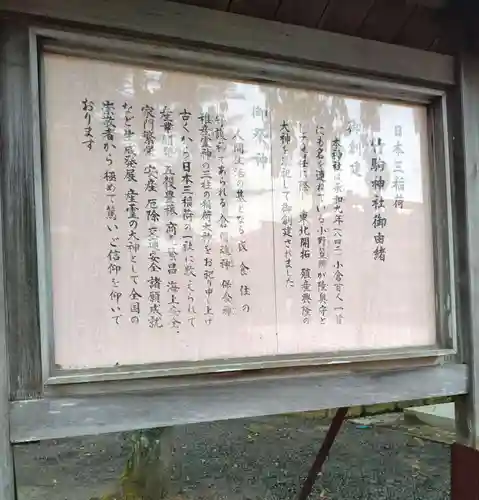 日本三稲荷
竹駒神社御由緒
御創建
本神社は承和九年(八四二)小倉百人一首
にも名を連ねている小野篁卿が陸奥守と
して赴任に際し、東北開拓、殖産興隆の
大神を祀して御創建されました
御祭神
人間生活の基となる衣食住の
守護神であられる倉稲魂神、保食神
稚産霊神の三柱の稲荷大神をお祀り申し上げ
古くから日本三稲荷の一社に数えられて
産業開発、五穀豊穣、商売繁昌、海上安全、
家門繁栄、安産、厄除、交通安全、諸願成就
など生成発展、産霊の大神として全国の
崇敬者から極めて篤いご信仰を仰いで
おります